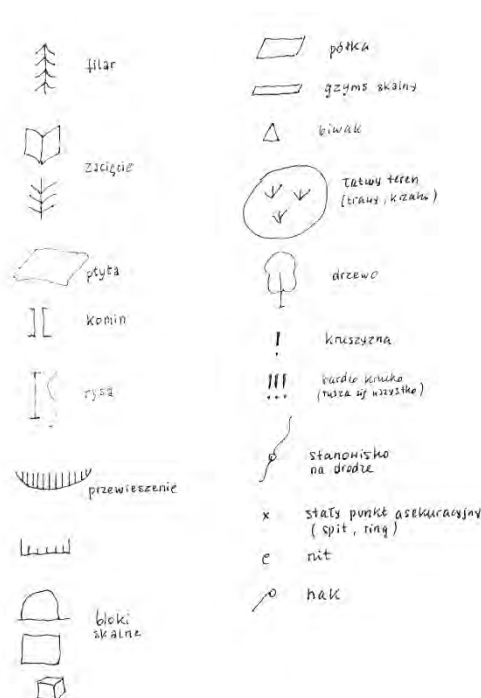 filar
zacięcie
płyta
komin
rysa
przewieszenie
bloki
skalne
półka
gzyms skalny
biwak
łatwy teren
(trawy, krzaki)
drzewo
! kruszyzna
!!! bardzo krucho
(rusza się wszystko)
stanowisko
na drodze
x stały punkt asekuracyjny
(spit, ring)
nit
hak